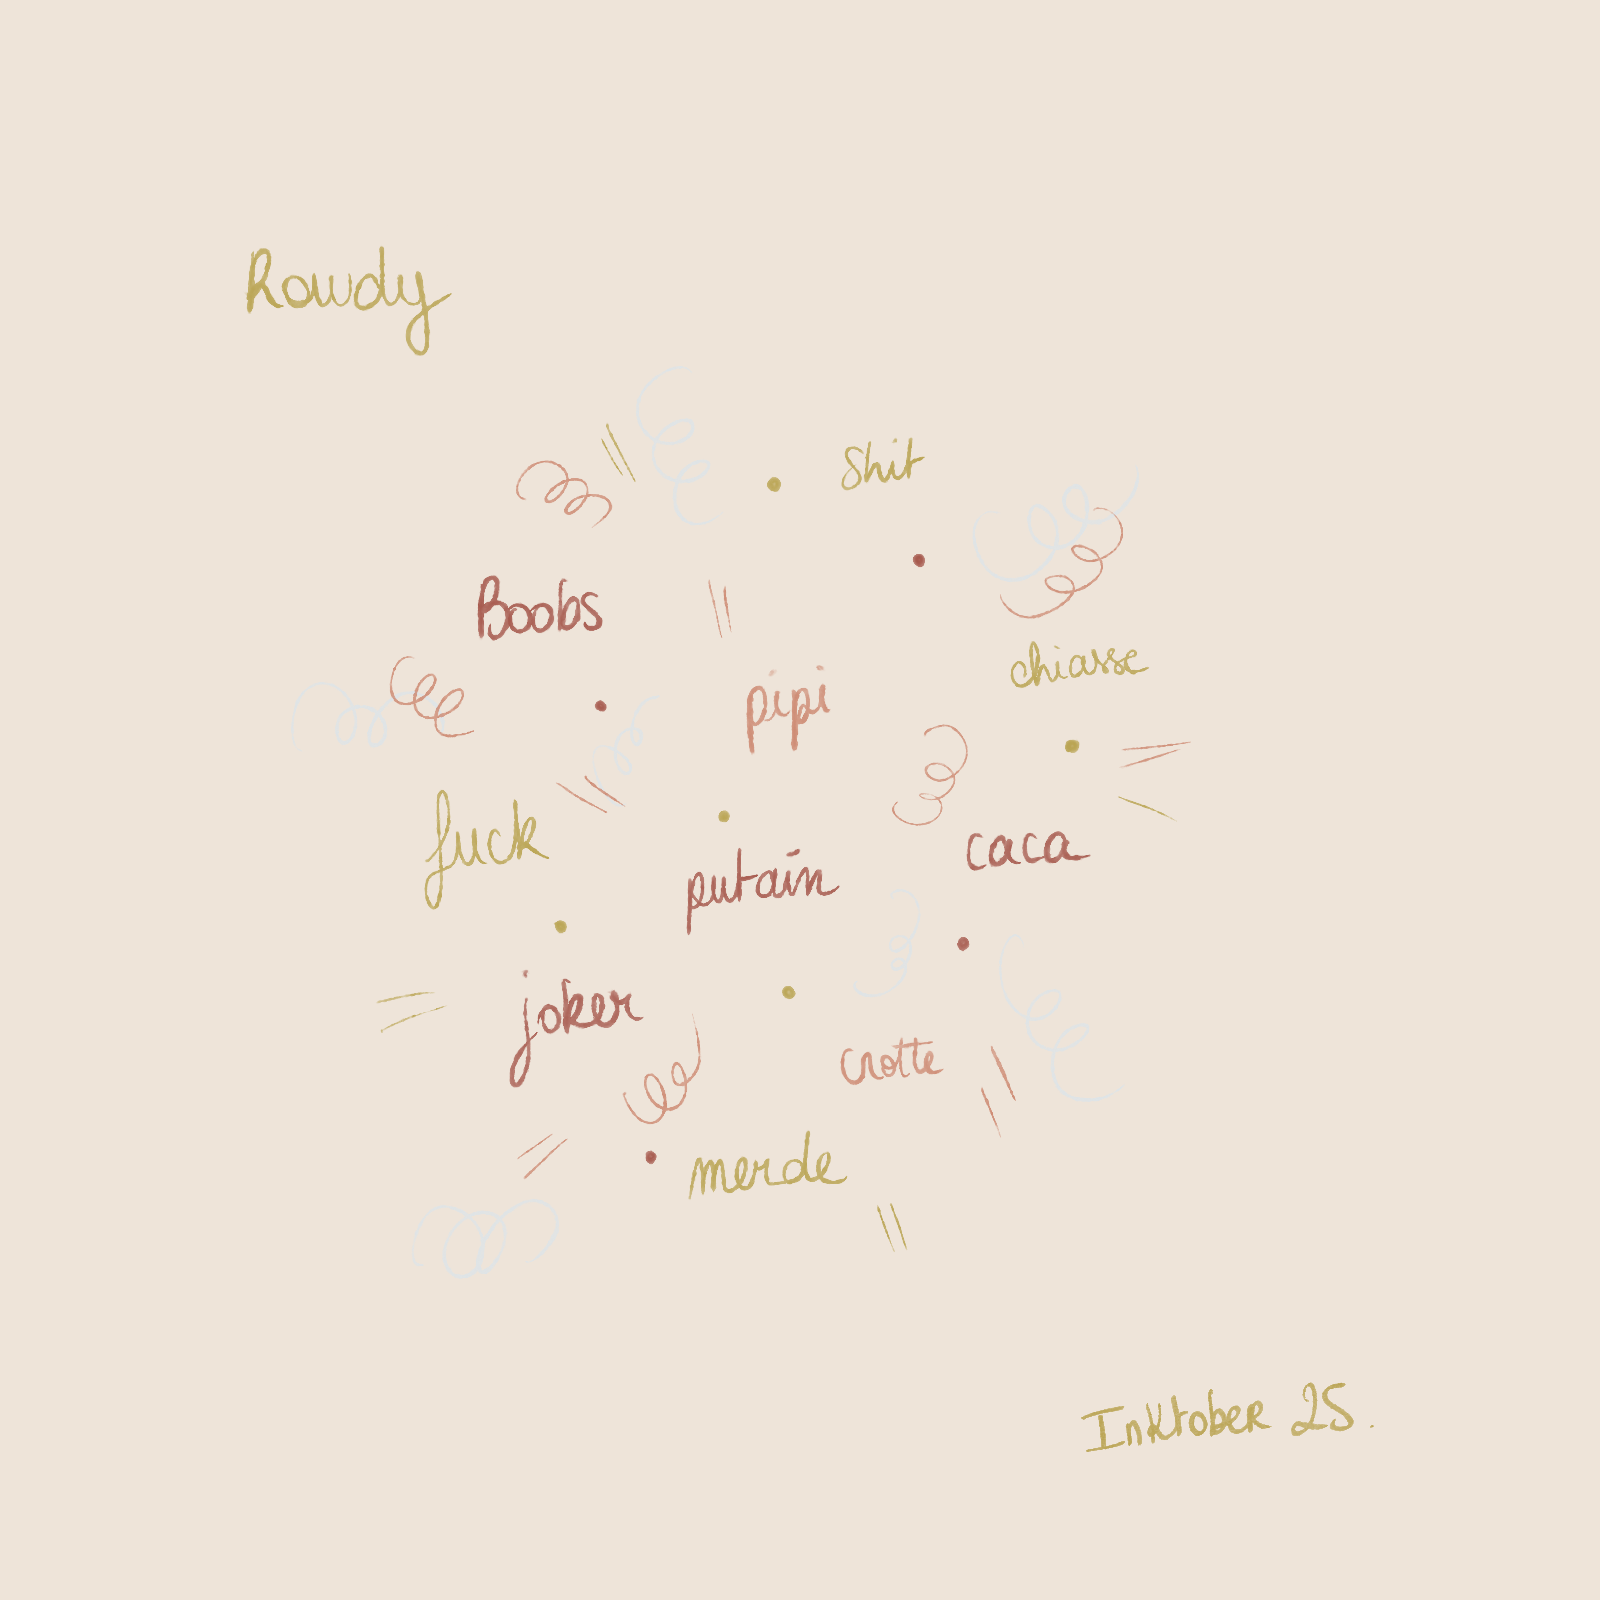 Rowdy
Shit
Boobs
chiasse
pipi
fuck
caca
putain
joker
crotte
merde
InKtober 25.